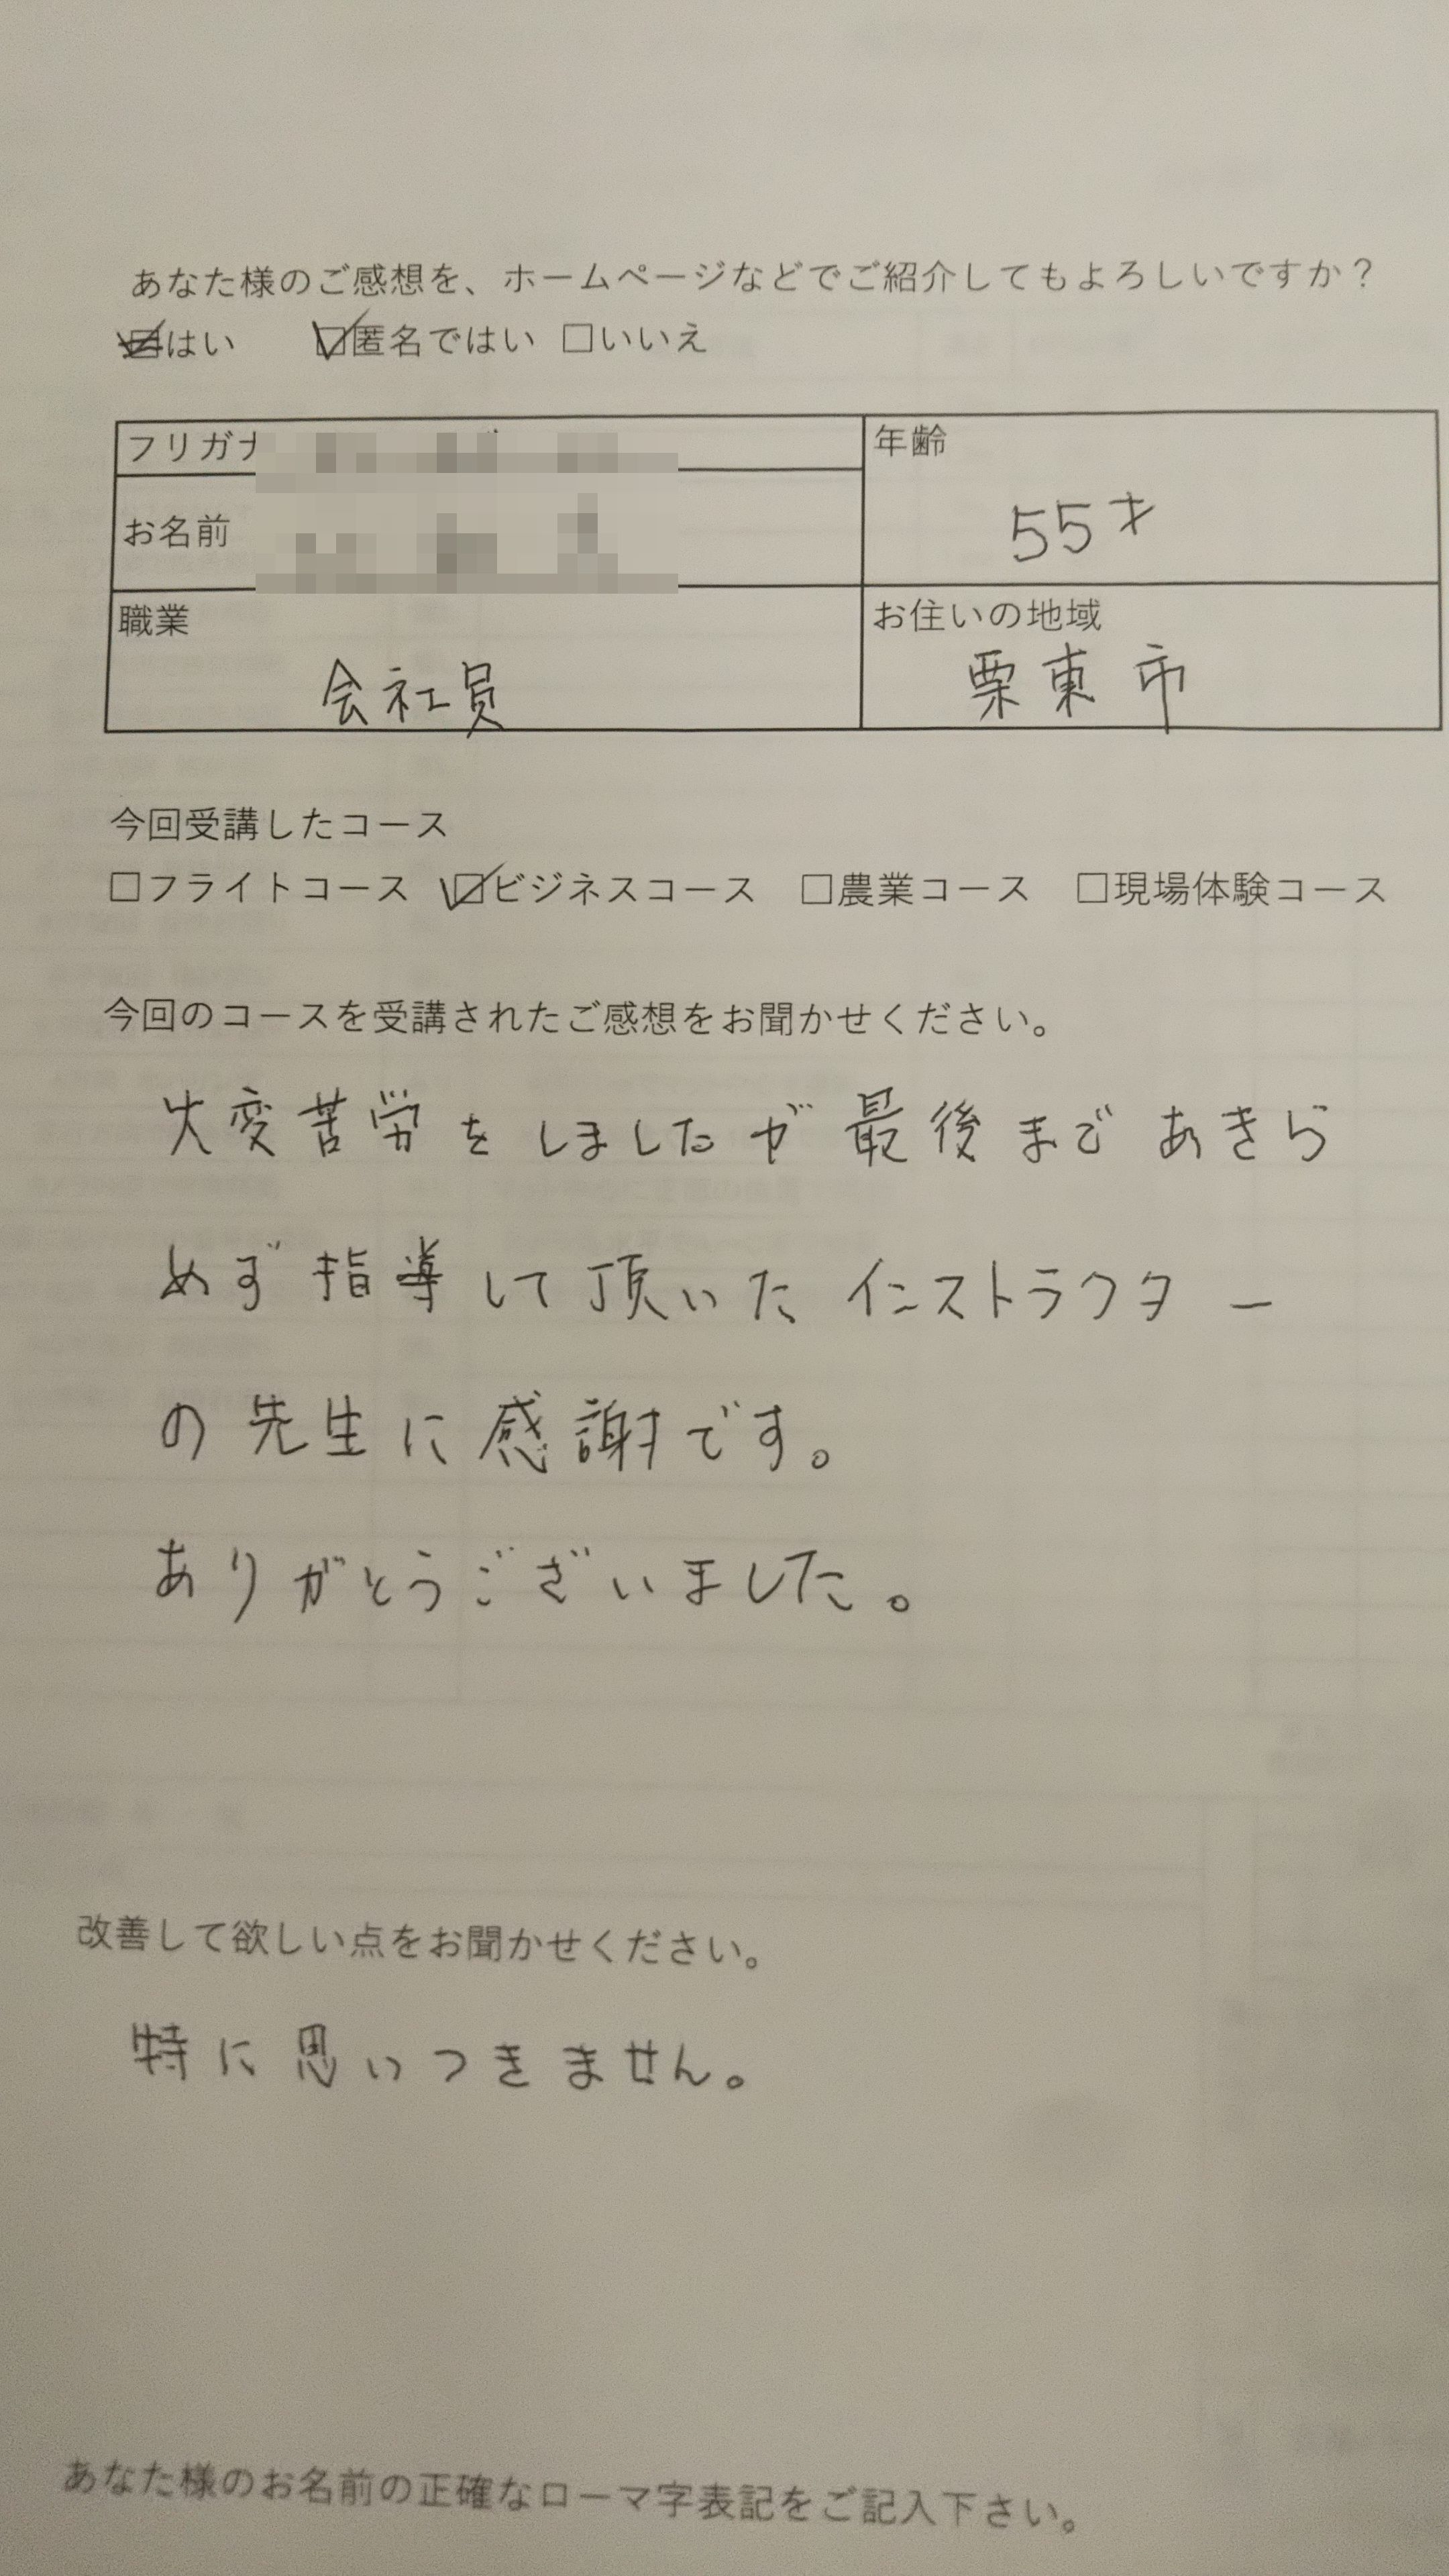 あなた様のご感想を、ホームページなどでご紹介してもよろしいですか？
☑はい ☑匿名ではい □いいえ
フリガナ
年齢
お名前
55才
職業
お住いの地域
会社員
栗東市
今回受講したコース
□フライトコース ☑ビジネスコース □農業コース □現場体験コース
今回のコースを受講されたご感想をお聞かせください。
大変苦労をしましたが最後まであきら
めず指導して頂いたインストラクター
の先生に感謝です。
ありがとうございました。
改善して欲しい点をお聞かせください。
特に思いつきません。
あなた様のお名前の正確なローマ字表記をご記入下さい。